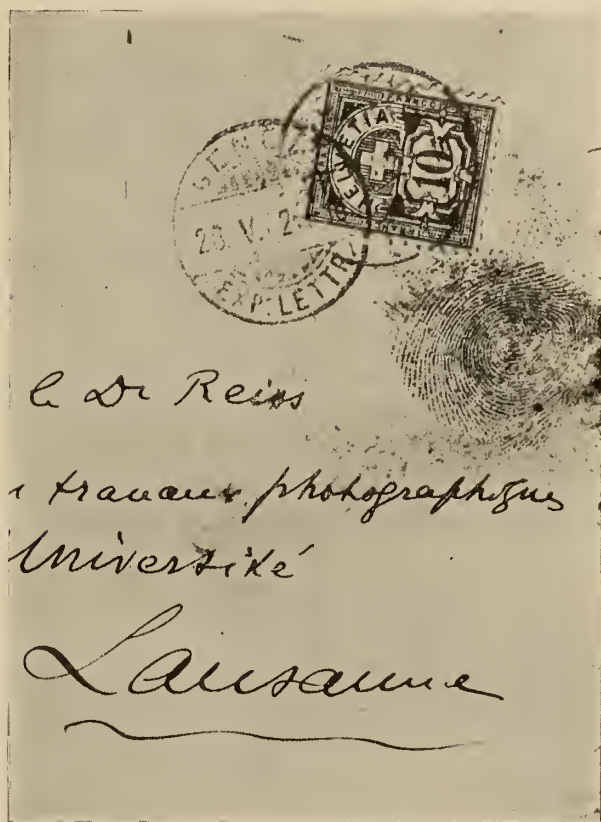 FRANCO
HELVETIA
10
20. V.
EXP. LETTR.
le Dr Reiss
travaux photographiques
Université
Lausanne